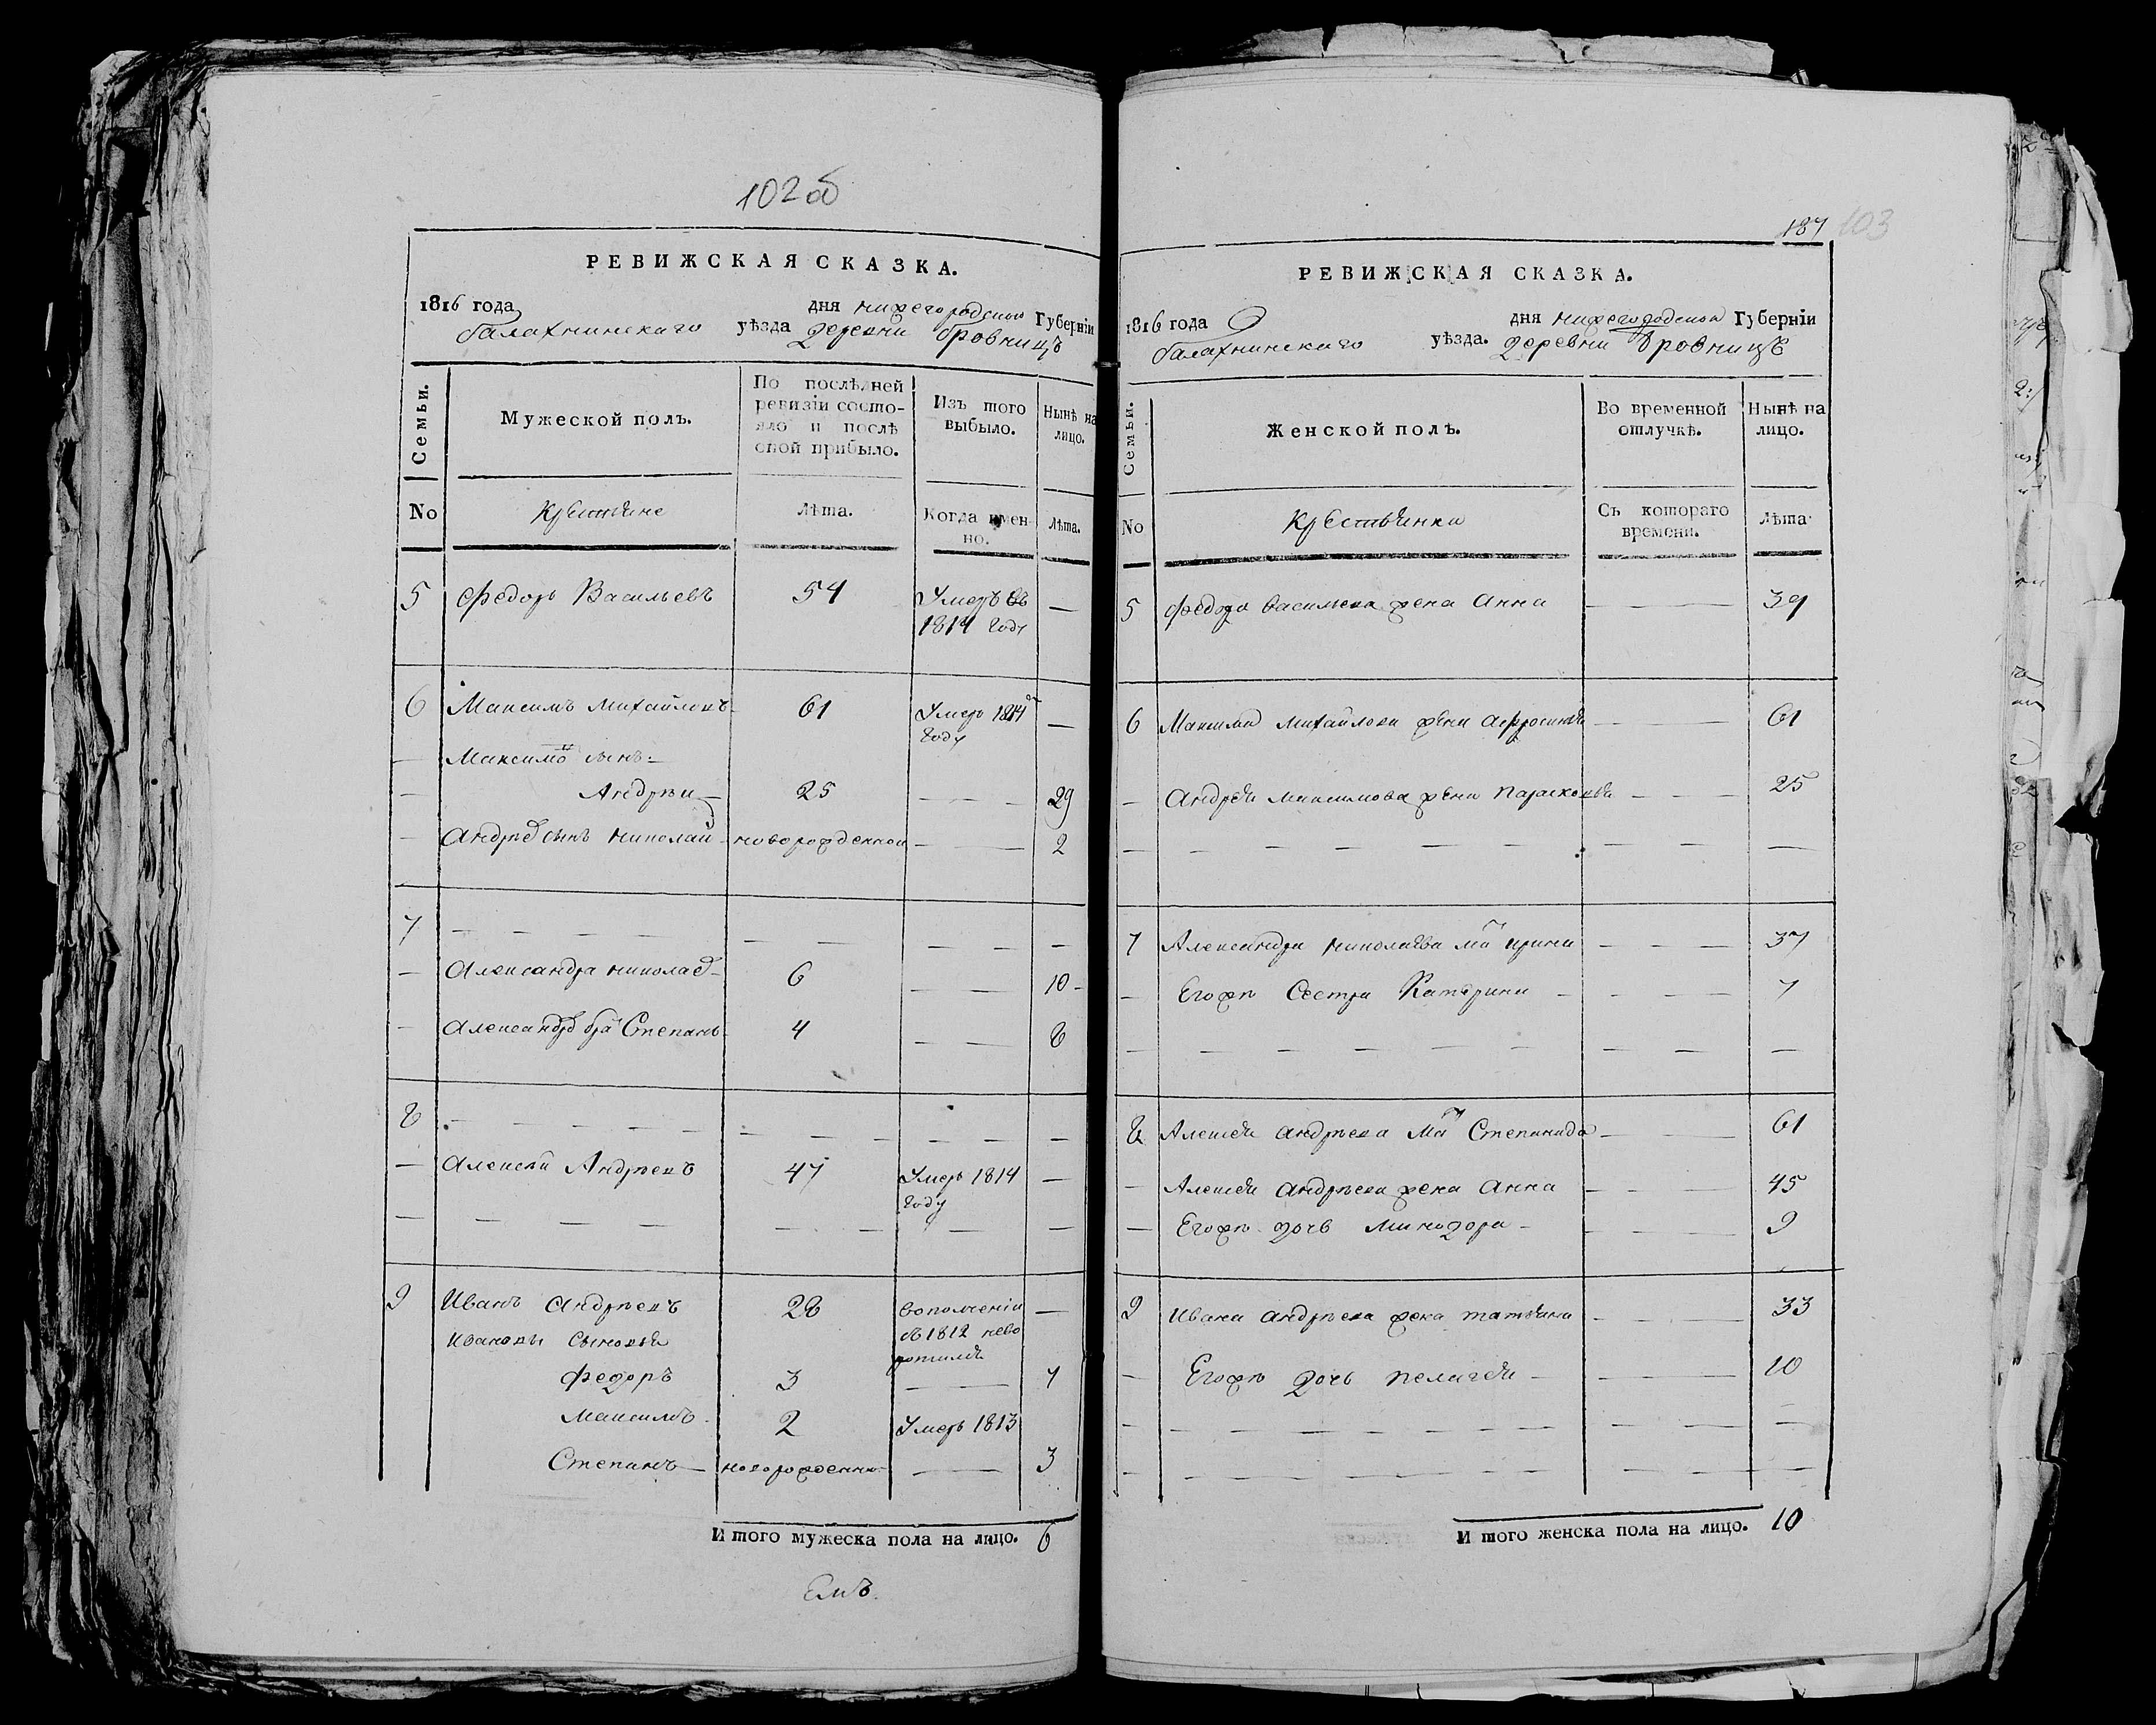 102 об
РЕВИЖСКАЯ СКАЗКА.
1816 года дня нижегородской Губернїи
балахнинскаго уѣзда деревни бровницъ
Семьи.
Мужеской полъ.
По послѣдней
ревизїи состо-
яло и послѣ
оной прибыло.
Изъ того
выбыло.
Нынѣ на
лицо.
No
крестьяне
Лѣта.
Когда имен-
но.
Лѣта.
5 Федоръ Васильевъ 54 Умеръ въ —
1814 году
6 Максимъ Михайловъ 61 Умеръ 1814 —
году
— Максимо сынъ —
— Андреи — 25 — — — 29
— андрѣ сынъ николай новорожденной — — 2
7 — — — — — — — — —
— александра никола 6 — — 10 -
— александр бра Степанъ 4 — — 8
8 — — — — — — — — — — —
— алексѣй Андреевъ 47 Умеръ 1814 —
году
— — — — — — — —
9 Иванъ андреевъ 28 вополченїи —
въ 1812 нево
ротился
Ивановы сыновья
федоръ 3 — — 7
Максимъ 2 Умеръ 1813
Степанъ — новорожденной — 3
И того мужеска пола на лицо. 6
187 103
РЕВИЖСКАЯ СКАЗКА.
1816 года дня нижегородской Губернїи
балахнинскаго уѣзда. деревни бровницъ
Семьи.
Женской полъ.
Во временной
отлучкѣ.
Нынѣ на
лицо.
No
крестьянки
Съ котораго
времени.
Лѣта
5 федора васильева жена анна — — 39
6 Максима михайлова жена афросинья — — 61
— андрея максимова жена парасковья — — 25
— — — — — — — — —
7 Александра николаева ма ирина — — — 37
— Егожъ Сестра Катерина — — — 7
— — — — — — — — —
8 Алексея андреева ма Степанида — — 61
— Алексея андреева жена анна — — — 45
— Егожъ дочь минодора — — — 9
9 ивана андреева жена татьяна — — 33
— Егожъ дочь пелагея — — — 10
— — — — — — — — — —
— — — — — — — — — —
И того женска пола на лицо. 10